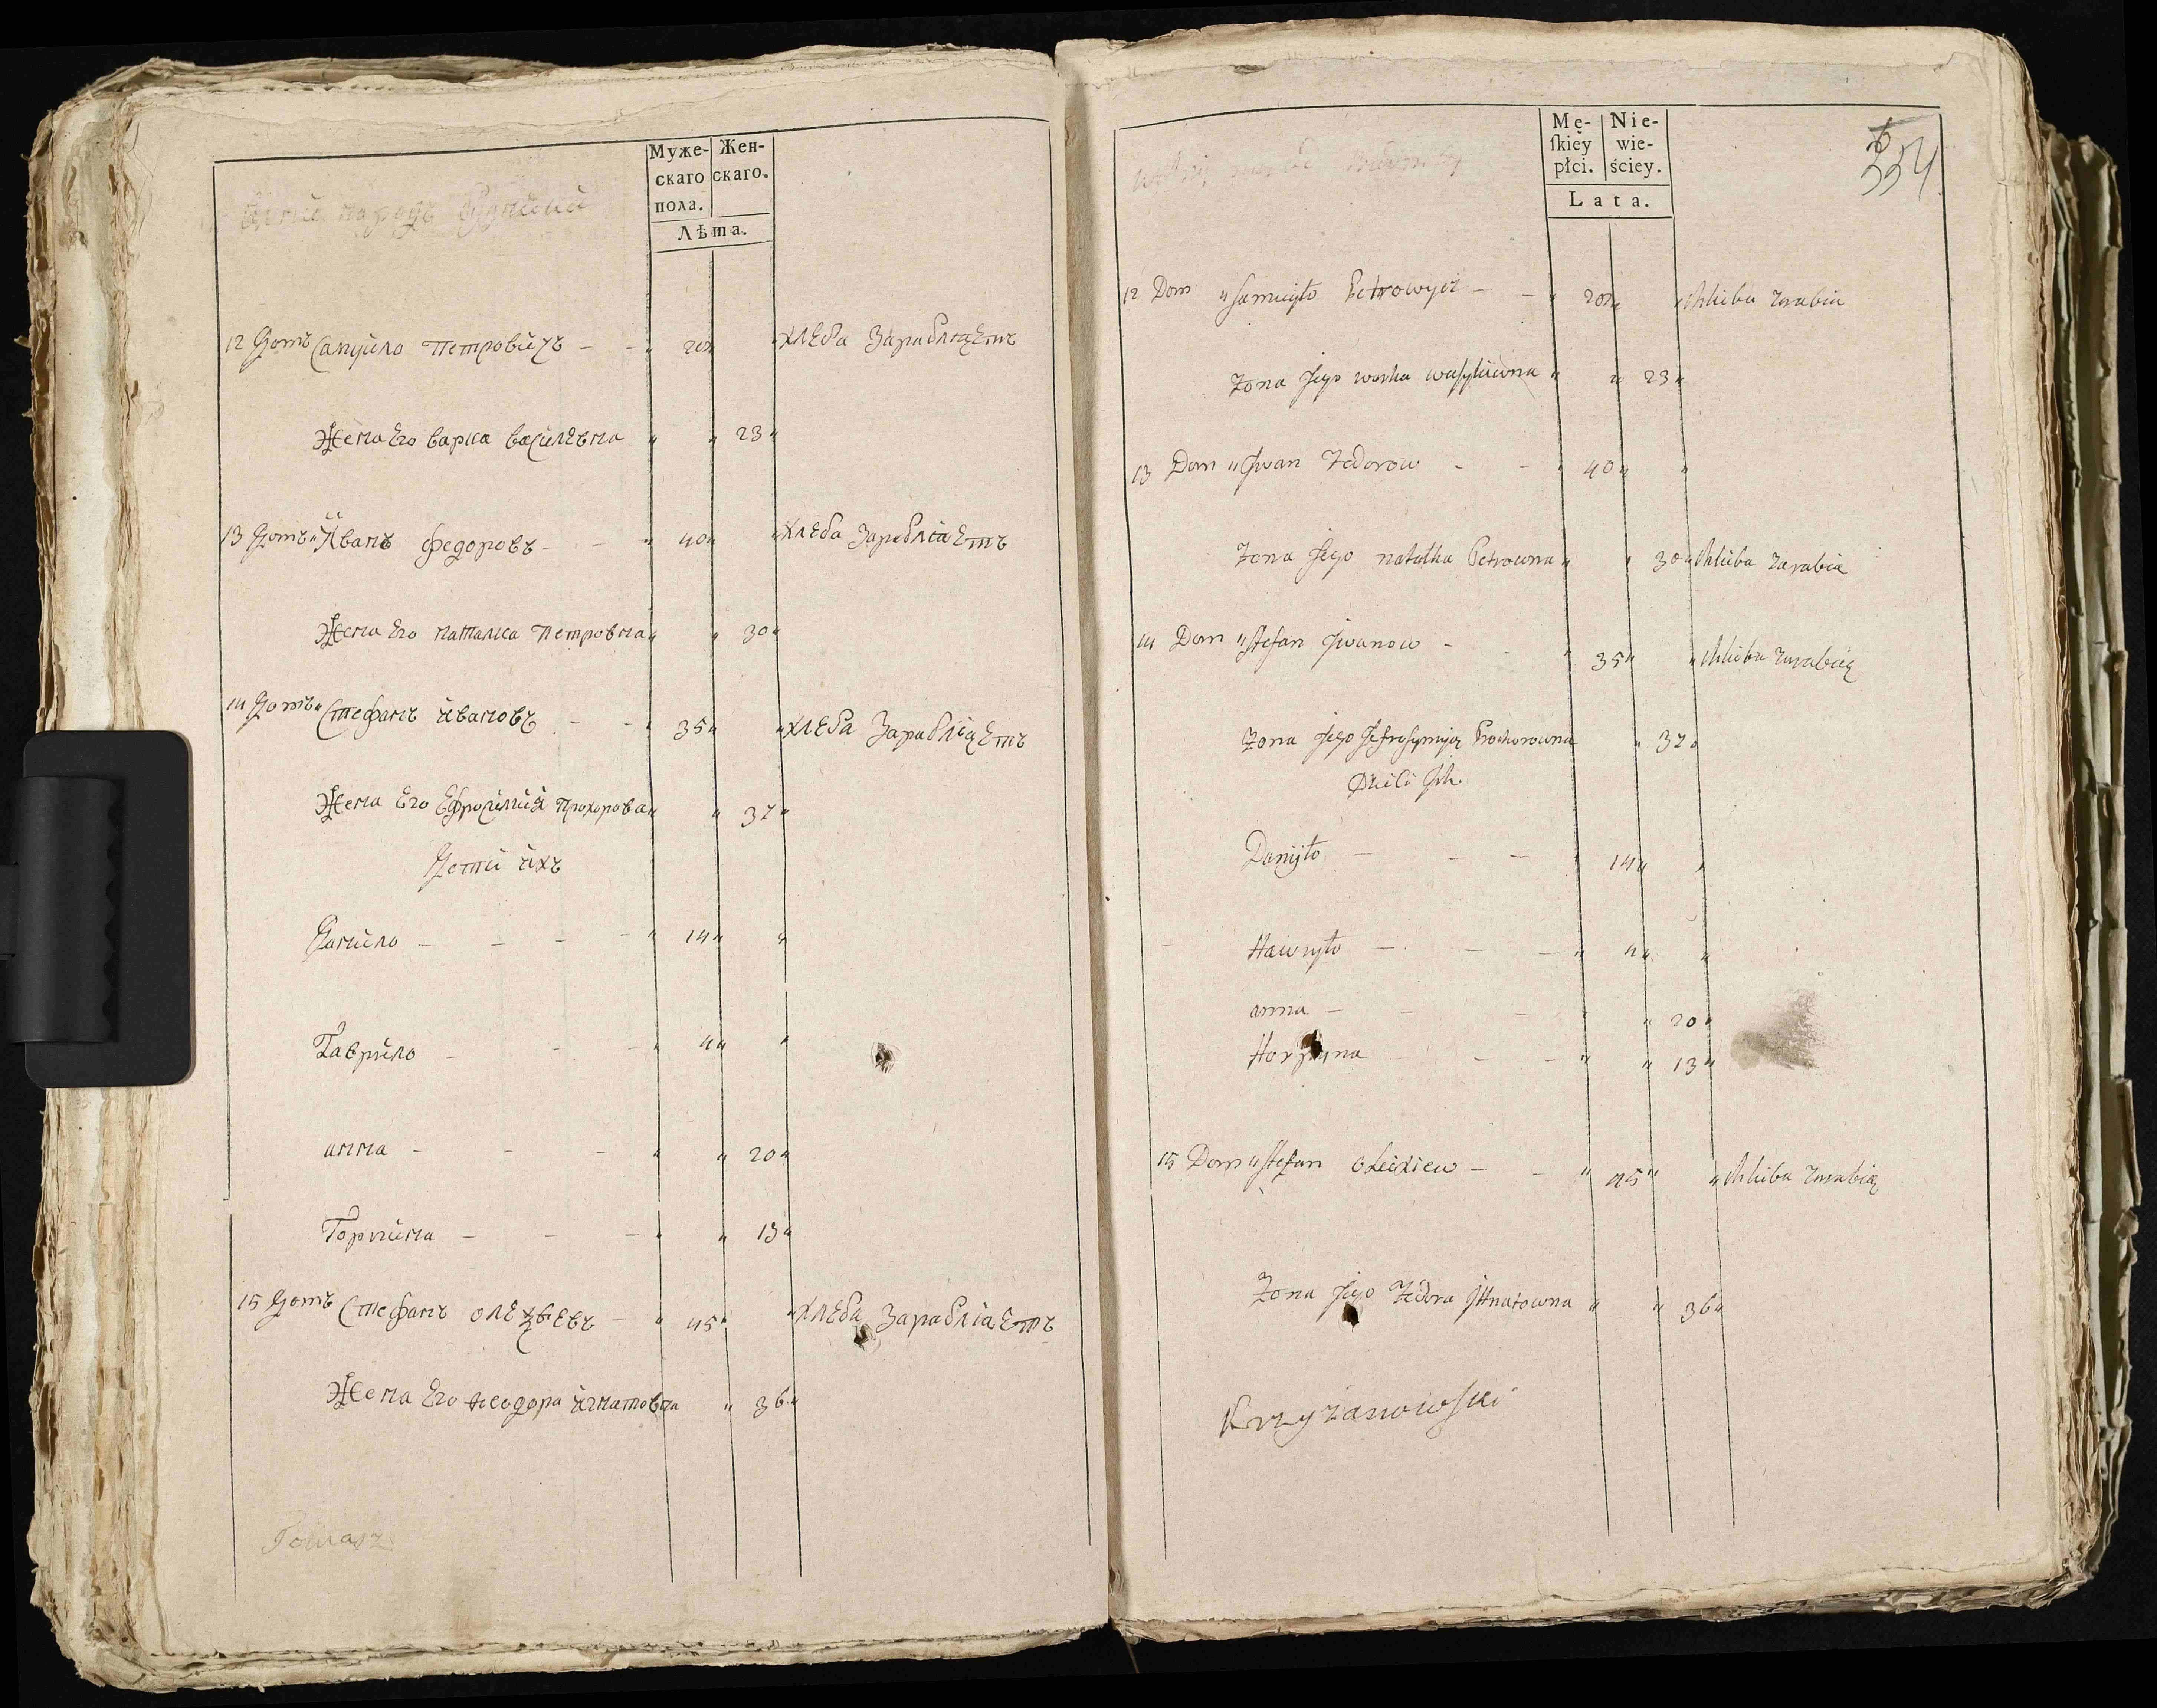 Муже-
скаго
пола.
Жен-
скаго.
Лѣта.
12 Домъ Самуйло Петровичъ - - " 20 " " Хлеба Зарабляетъ
Жена Его Варка Василевна " " 23 "
13 Домъ " Иванъ Федоровъ - - " 40 " " Хлеба Зарабляетъ
Жена Его Наталка Петровна " " 30 "
14 Домъ " Стефанъ Ивановъ - - " 35 " " Хлеба Зарабляетъ
Жена Его Ефросиния Прохорова " " 32 "
Дети ихъ
Данило - - - - " 14 " "
Гаврило - - - " 4 " "
анна - - - " " 20 "
Горпина - - - " " 13 "
15 Домъ Стефанъ Олексѣевъ - " 45 " " Хлеба Зарабляетъ
Жена Его Феодора Игнатовна " 36 "
Tomasz
Mę-
ſkiey
płci.
Nie-
wie-
ściey.
Lata.
354
12 Dom " Samuyło Petrowycz - - " 20 " " Chliba Zarabia
Zona Jego warka wasylowna " " 23 "
13 Dom " Jwan Fedorow - - " 40 " "
Zona Jego natalka Petrowna " " 30 " Chliba Zarabia
14 Dom " Stefan Jwanow - - " 35 " " Chliba Zarabia
Zona Jego Jefrosynija Prochorowna " 32 "
Dzieci Jch
Danyło - - - " 14 " "
Hawryło - - - " 4 " "
anna - - - " " 20 "
Horpyna - - " " 13 "
15 Dom " Stefan Olexiew - - " 45 " " Chliba Zarabia
Zona Jego Fedora Jhnatowna " " 36 "
Krzyżanowski